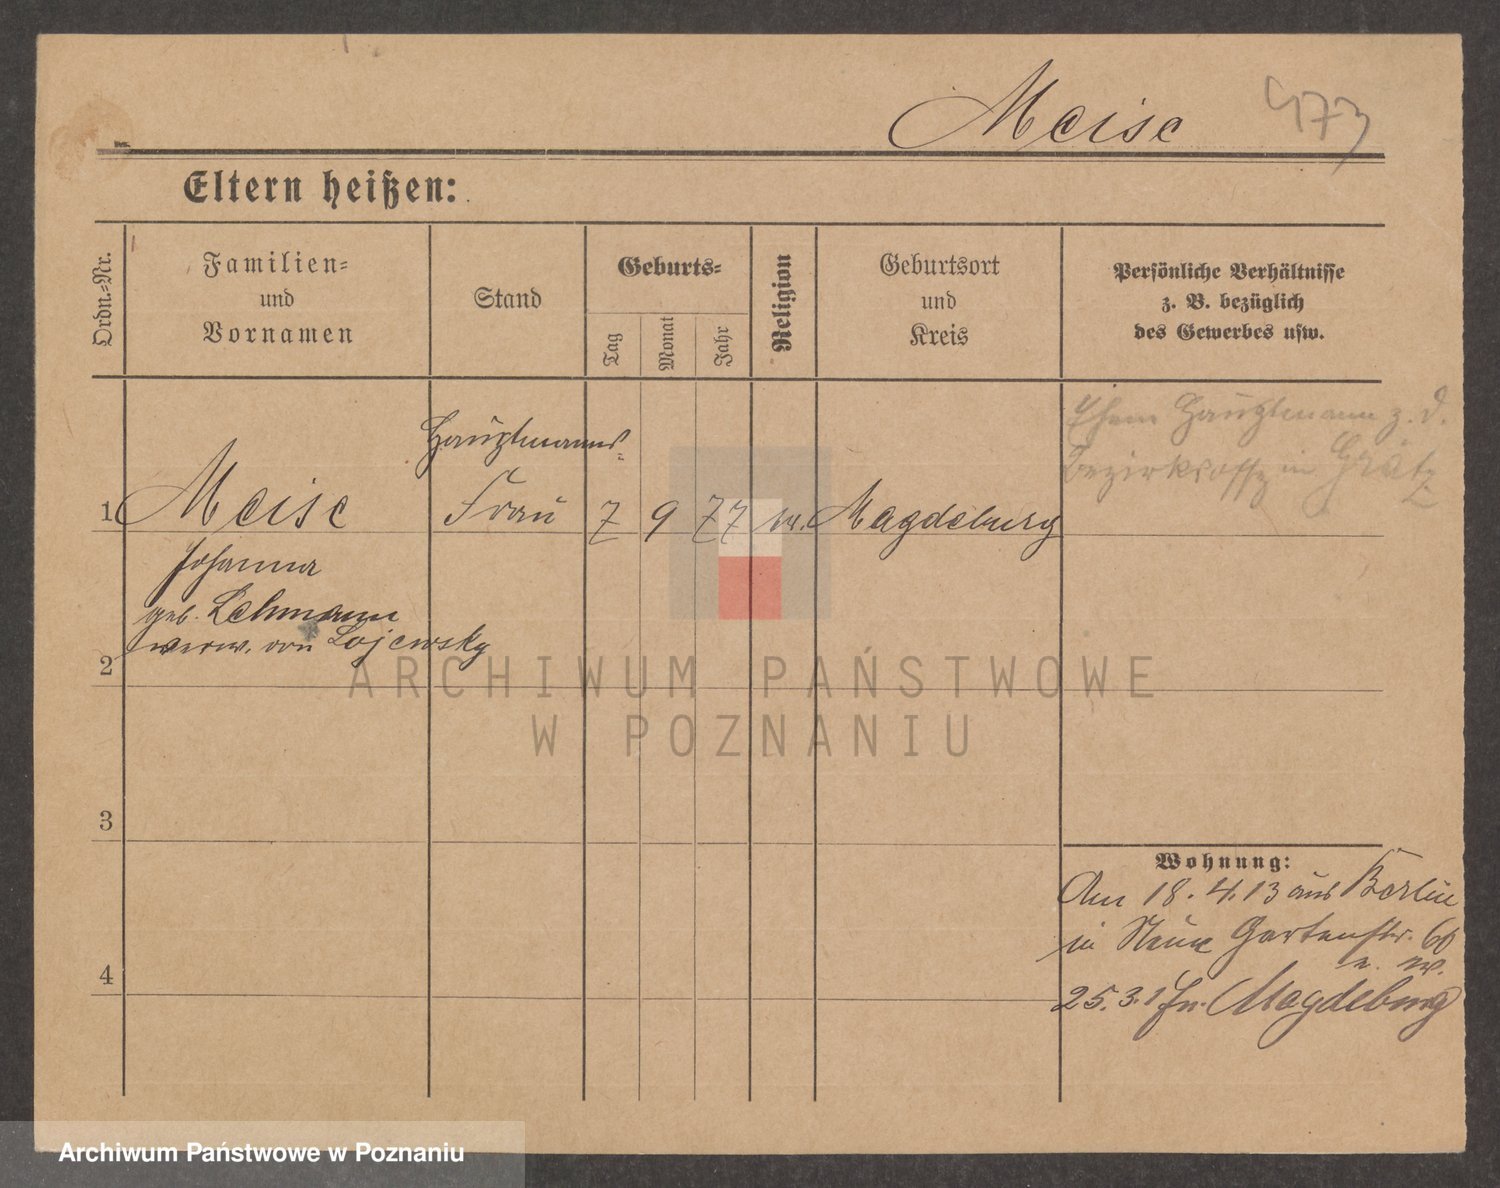 Meise 473
Eltern heißen:
Ordn.-Nr.
Familien-
und
Vornamen
Stand
Geburts-
Tag
Monat
Jahr
Religion
Geburtsort
und
Kreis
Persönliche Verhältnisse
z. B. bezüglich
des Gewerbes usw.
Hauptmanns-
1 Meise Frau 7 9 77 ev. Magdeburg
Johanna
geb. Lehmann
verw. von Lojewsky
Ehem Hauptmann z. D.
Bezirksoffz in Grätz
2
3
4
Wohnung:
Am 18.4.13 aus Berlin
in Gartenstr. 60
25.3.1 Magdeburg
ARCHIWUM PAŃSTWOWE
W POZNANIU
Archiwum Państwowe w Poznaniu